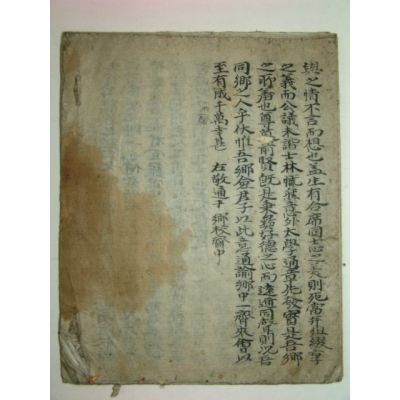 與之情不言而想也盖生有合席同志之美則死當并享
之義而公議未諧士林慨意外太學通章先發實是吾鄉
之所也尊慕前賢旣是秉彛好德之心而遠邇同聲則況吾
同鄉之人乎伏惟吾鄉僉君子以此意通諭鄉中一齊來會以
至有成千萬幸甚 右敬通于 鄉校齋中